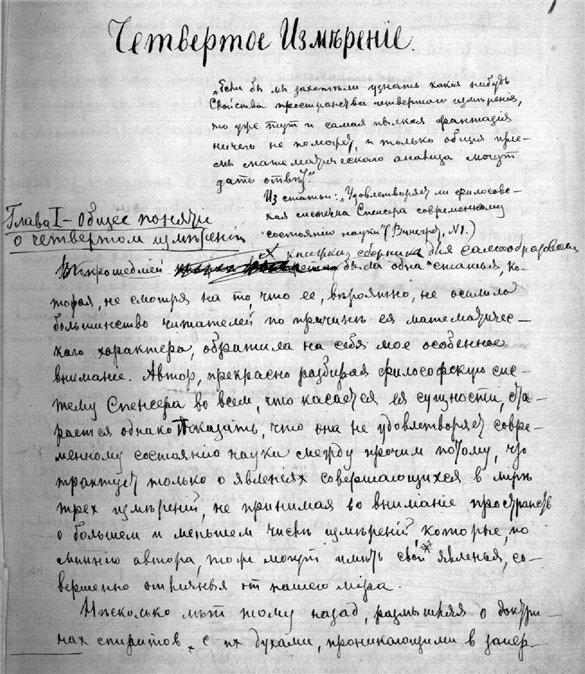 Четвертое Измѣренiе.
„Если бы мы захотѣли узнать какiя нибудь
свойства пространства четвертаго измѣренiя,
то уже тутъ и самая пылкая фантазiя
ничего не поможетъ, и только общiе прiе-
мы математическаго анализа могутъ
дать отвѣтъ."
Из статьи: „Удовлетворяетъ ли философс-
кая система Спенсера современному
состоянiю науки" ( №1.)
Глава I – Общее понятiе
о четвертом измѣренiи
В прошедшей X книжкѣ сборника для самообразованiя
была одна статья, ко-
торая, не смотря на то, что ее, вѣроятно, не осилило
большинство читателей, по причинѣ ея математичес-
каго характера, обратила на себя мое особенное
вниманiе. Автор, прекрасно разбирая философскую сис-
тему Спенсера во всем, что касается ея сущности, ста-
рается однако показать, что она не удовлетворяет совре-
менному состоянiю науки между прочим потому, что
трактует только о явленiях совершающихся в мiрѣ
трех измѣренiй, не принимая во вниманiе пространств
о большем и меньшем числѣ измѣренiй, которые, по
мнѣнiю автора, тоже могут имѣть свои* явленья, со-
вершенно отличныя от нашего мiра.
Нѣсколько лѣт тому назад, размышляя о доктри-
нах спиритов, с их духами, проникающими в запер-